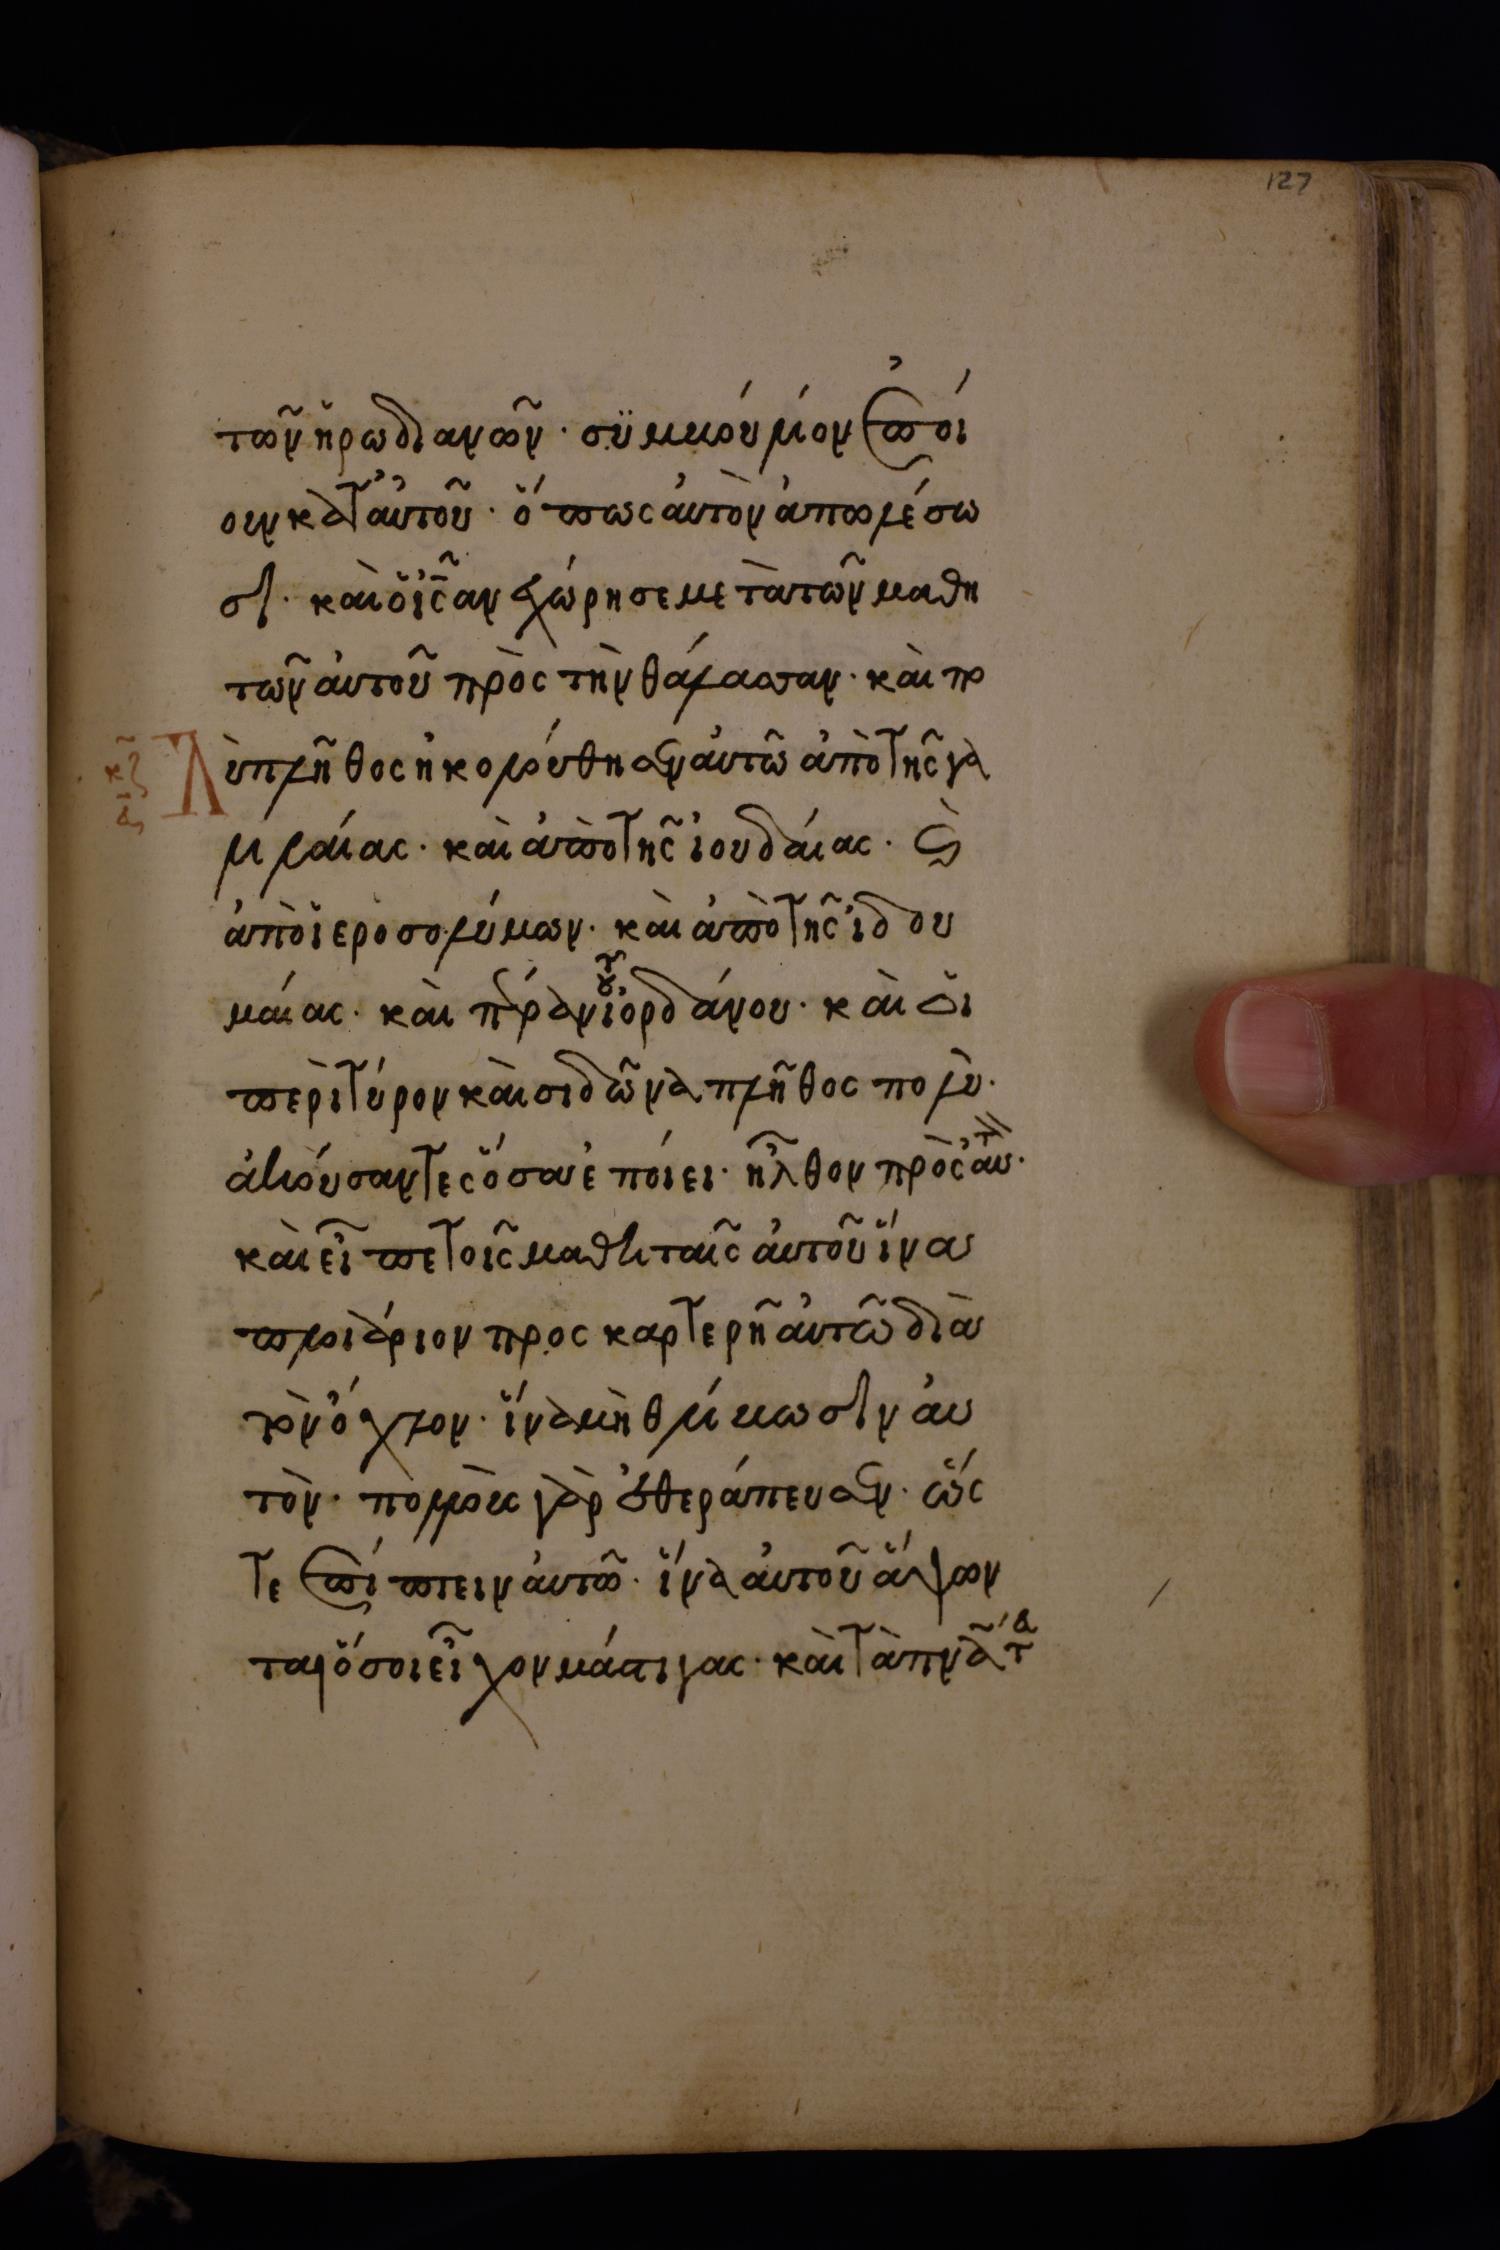 127
τῶν ἡρωδιανῶν· συμβούλιον ἐποί
ουν κατ' αὐτοῦ· ὅπως αὐτὸν ἀπολέσω
σι· καὶ ὁ ἰς̄ ἀνεχώρησε μετὰ τῶν μαθη
τῶν αὐτοῦ πρὸς τὴν θάλασσαν· καὶ πο
λὺ πλῆθος ἠκολούθησαν αὐτῶ ἀπὸ τῆς γα
λιλαίας· καὶ ἀπὸ τῆς ἰουδαίας· καὶ
ἀπὸ ἱεροσολύμων· καὶ ἀπὸ τῆς ἰδου
μαίας· καὶ πέραν τοῦ ἰορδάνου· καὶ οἱ
περὶ τύρον καὶ σιδῶνα πλῆθος πολὺ·
ἀκούσαντες ὅσα ἐποίει· ἦλθον πρὸς αὐτ·
καὶ εἶπε τοῖς μαθηταῖς αὐτοῦ ἵνα
πλοιάριον προσκαρτερῆ αὐτῶ διὰ
τὸν ὄχλον· ἵνα μὴ θλίβωσιν αὐ
τὸν· πολλοὺς γὰρ ἐθεράπευσεν· ὥς
τε ἐπιπίπτειν αὐτῶ· ἵνα αὐτοῦ ἅψων
ται ὅσοι εἶχον μάστιγας· καὶ τὰ πνᾶ τὰ
κζ